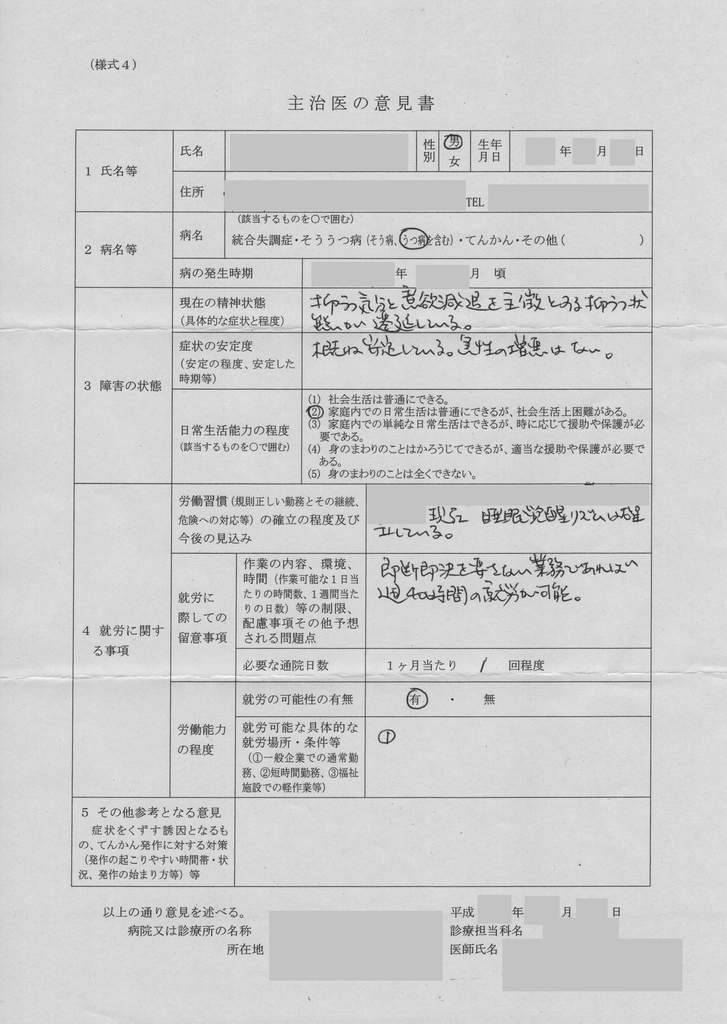 (様式4)
主治医の意見書
1 氏名等
氏名
性別
男
女
生年月日
年 月 日
住所
TEL
2 病名等
病名
(該当するものを○で囲む)
統合失調症・そううつ病 (そう病、うつ病を含む)・てんかん・その他 ( )
病の発生時期
年 月 頃
3 障害の状態
現在の精神状態
(具体的な症状と程度)
抑うつ気分と意欲減退を主徴とする抑うつ状
態が遷延している。
症状の安定度
(安定の程度、安定した
時期等)
概ね安定している。急性の増悪はない。
日常生活能力の程度
(該当するものを○で囲む)
(1) 社会生活は普通にできる。
(2) 家庭内での日常生活は普通にできるが、社会生活上困難がある。
(3) 家庭内での単純な日常生活はできるが、時に応じて援助や保護が必
要である。
(4) 身のまわりのことはかろうじてできるが、適当な援助や保護が必要で
ある。
(5) 身のまわりのことは全くできない。
4 就労に関す
る事項
労働習慣 (規則正しい勤務とその継続、
危険への対応等) の確立の程度及び
今後の見込み
現在 睡眠覚醒リズムは確
立している。
就労に
際しての
留意事項
作業の内容、環境、
時間 (作業可能な1日当
たりの時間数、1週間当た
りの日数) 等の制限、
配慮事項その他予想
される問題点
即断即決を要さない業務であれば
週40時間の就労が可能。
必要な通院日数
1ヶ月当たり 1 回程度
労働能力
の程度
就労の可能性の有無
有 ・ 無
就労可能な具体的な
就労場所・条件等
(①一般企業での通常勤
務、②短時間勤務、③福祉
施設での軽作業等)
①
5 その他参考となる意見
症状をくずす誘因となるも
の、てんかん発作に対する対策
(発作の起こりやすい時間帯・状
況、発作の始まり方等) 等
以上の通り意見を述べる。
平成 年 月 日
病院又は診療所の名称
診療担当科名
所在地
医師氏名